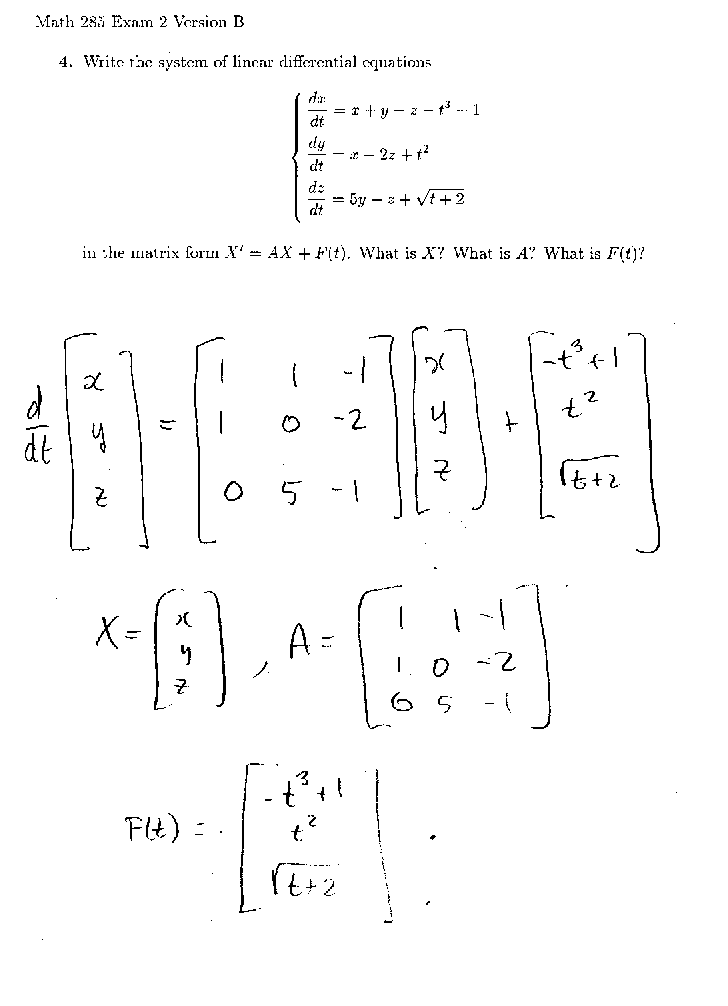 Math 285 Exam 2 Version B
4. Write the system of linear differential equations
dx/dt = x + y − z − t³ − 1
dy/dt = x − 2z + t²
dz/dt = 5y − z + √(t + 2)
in the matrix form X' = AX + F(t). What is X? What is A? What is F(t)?
d/dt [x y z] = [1 1 -1; 1 0 -2; 0 5 -1] [x y z] + [-t³+1; t²; √(t+2)]
X = [x y z], A = [1 1 -1; 1 0 -2; 0 5 -1]
F(t) = [-t³+1; t²; √(t+2)].